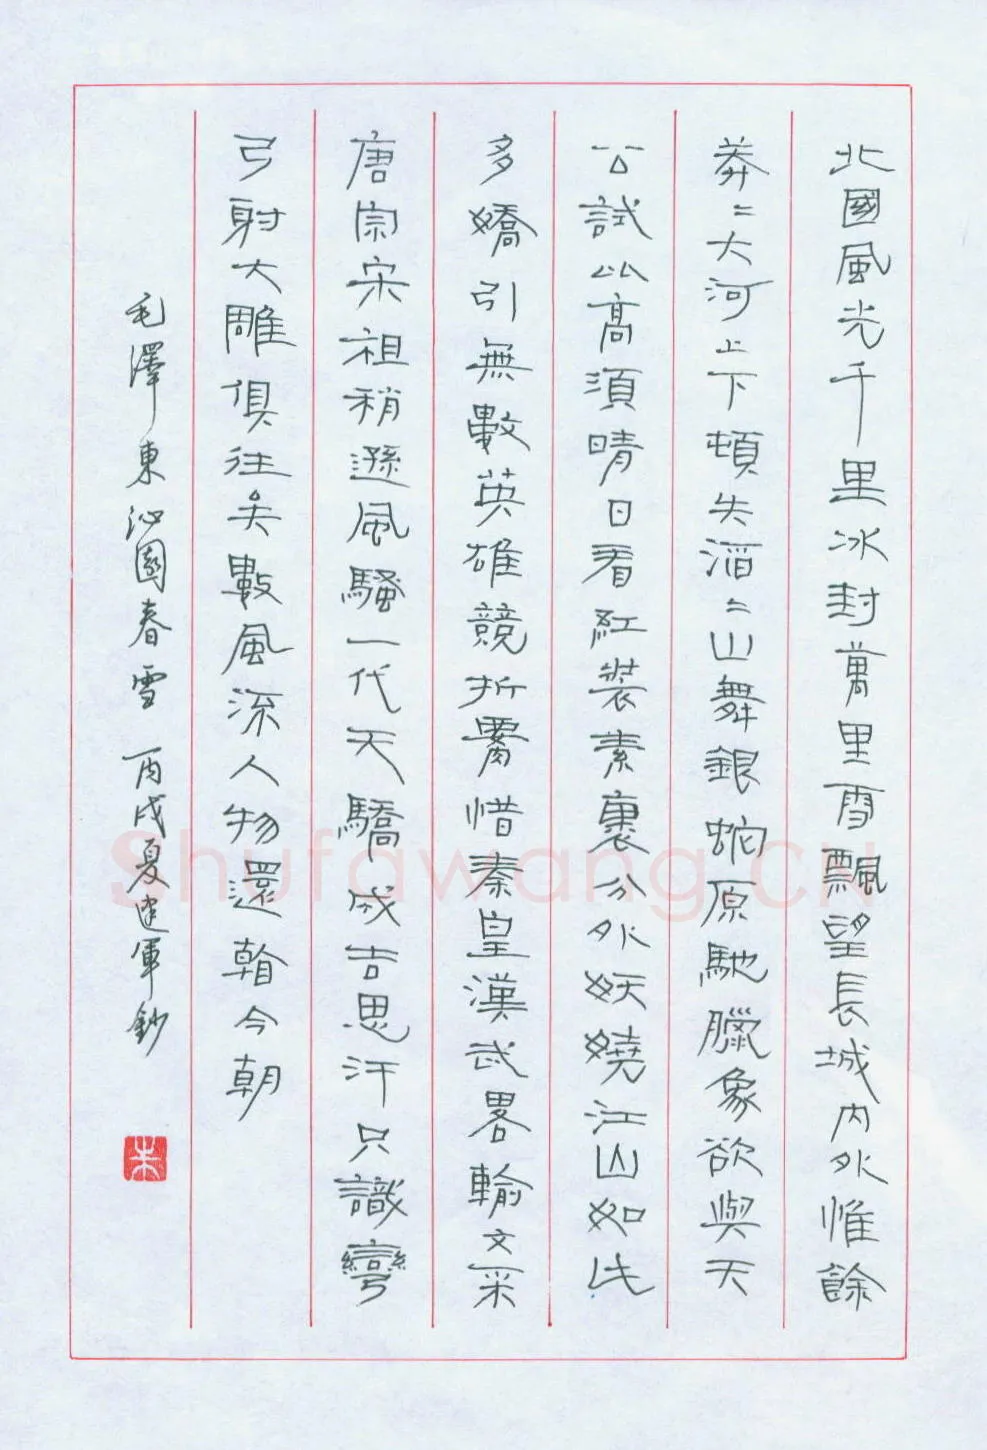 北國風光千里冰封萬里雪飄望長城內外惟餘
莽〻大河上下頓失滔〻山舞銀蛇原馳臘象欲與天
公試比高須晴日看紅裝素裹分外妖嬈江山如此
多嬌引無數英雄競折腰惜秦皇漢武畧輸文采
唐宗宋祖稍遜風騷一代天驕成吉思汗只識彎
弓射大雕俱往矣數風流人物還看今朝
毛澤東沁園春雪 丙戌夏建軍鈔
朱
Shufawang.CN